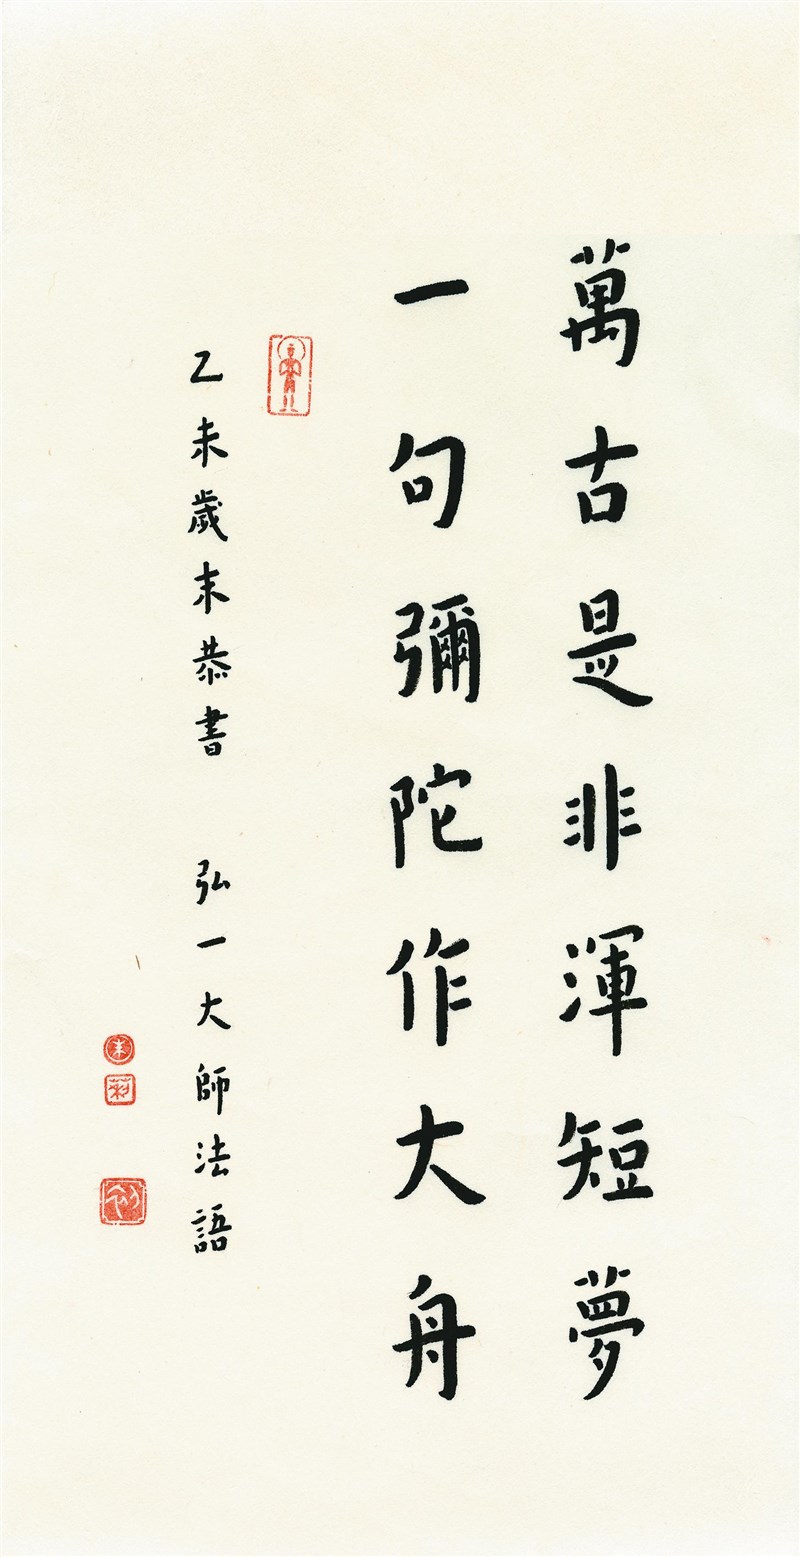 萬古是非渾短夢
一句彌陀作大舟
乙未歲末恭書 弘一大師法語